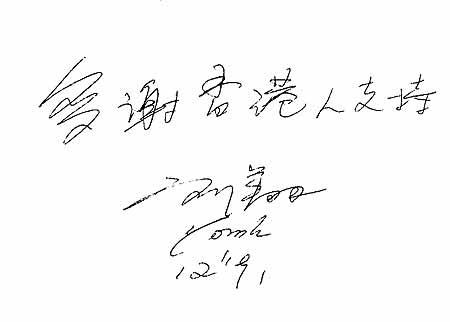 多谢香港人支持
刘翔
110mh
12"91